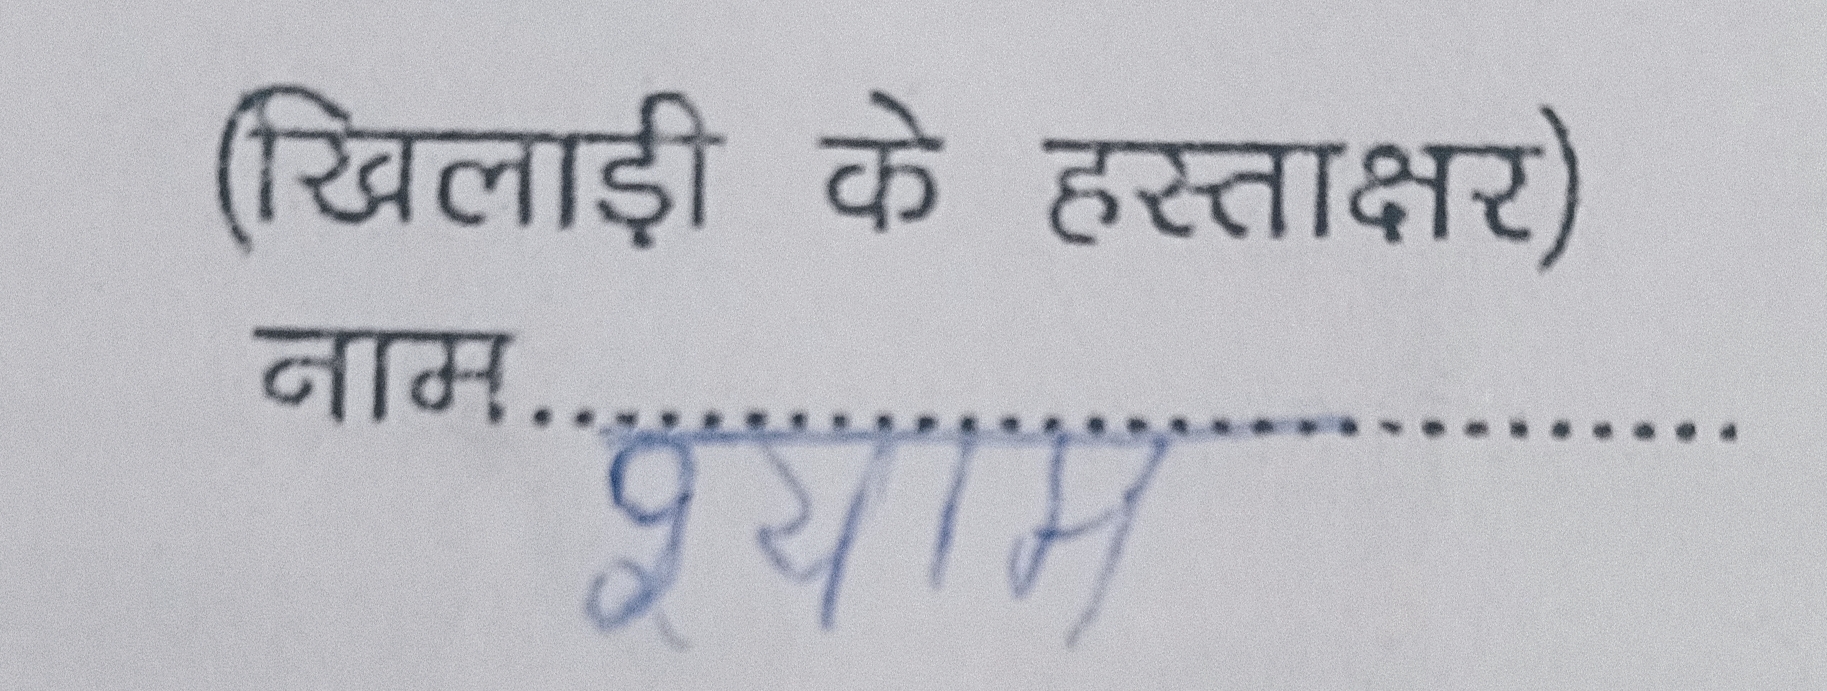 (खिलाड़ी के हस्ताक्षर)
नाम........................................
श्याम